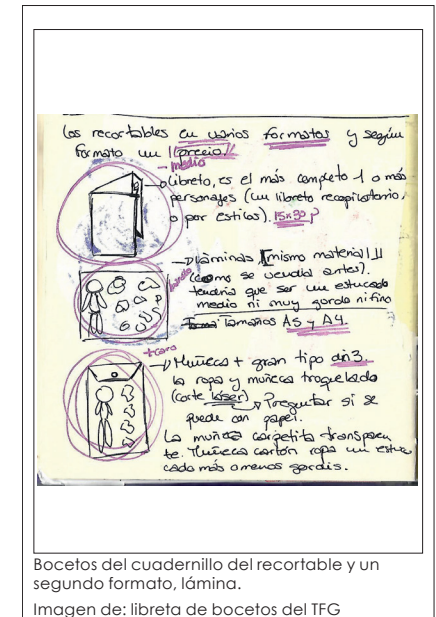 los recortables en varios formatos y según
formato un precio
- medio
Libreto, es el más completo 1 o más
personajes (un libreto recopilatorio,
o por estilos). 15x30 P
→ láminas, mismo material
(como se vendía antes).
tendría que ser un estucado
medio ni muy gordo ni fino
Tamaños A5 y A4.
+ caro
→ Muñeca + gran tipo din3.
la ropa y muñeca troquelado
(corte láser) → Preguntar si se
puede con papel.
La muñeca carpetita transparen
te. Muñeca cartón ropa un estu
cado más o menos gordis.
Bocetos del cuadernillo del recortable y un
segundo formato, lámina.
Imagen de: libreta de bocetos del TFG